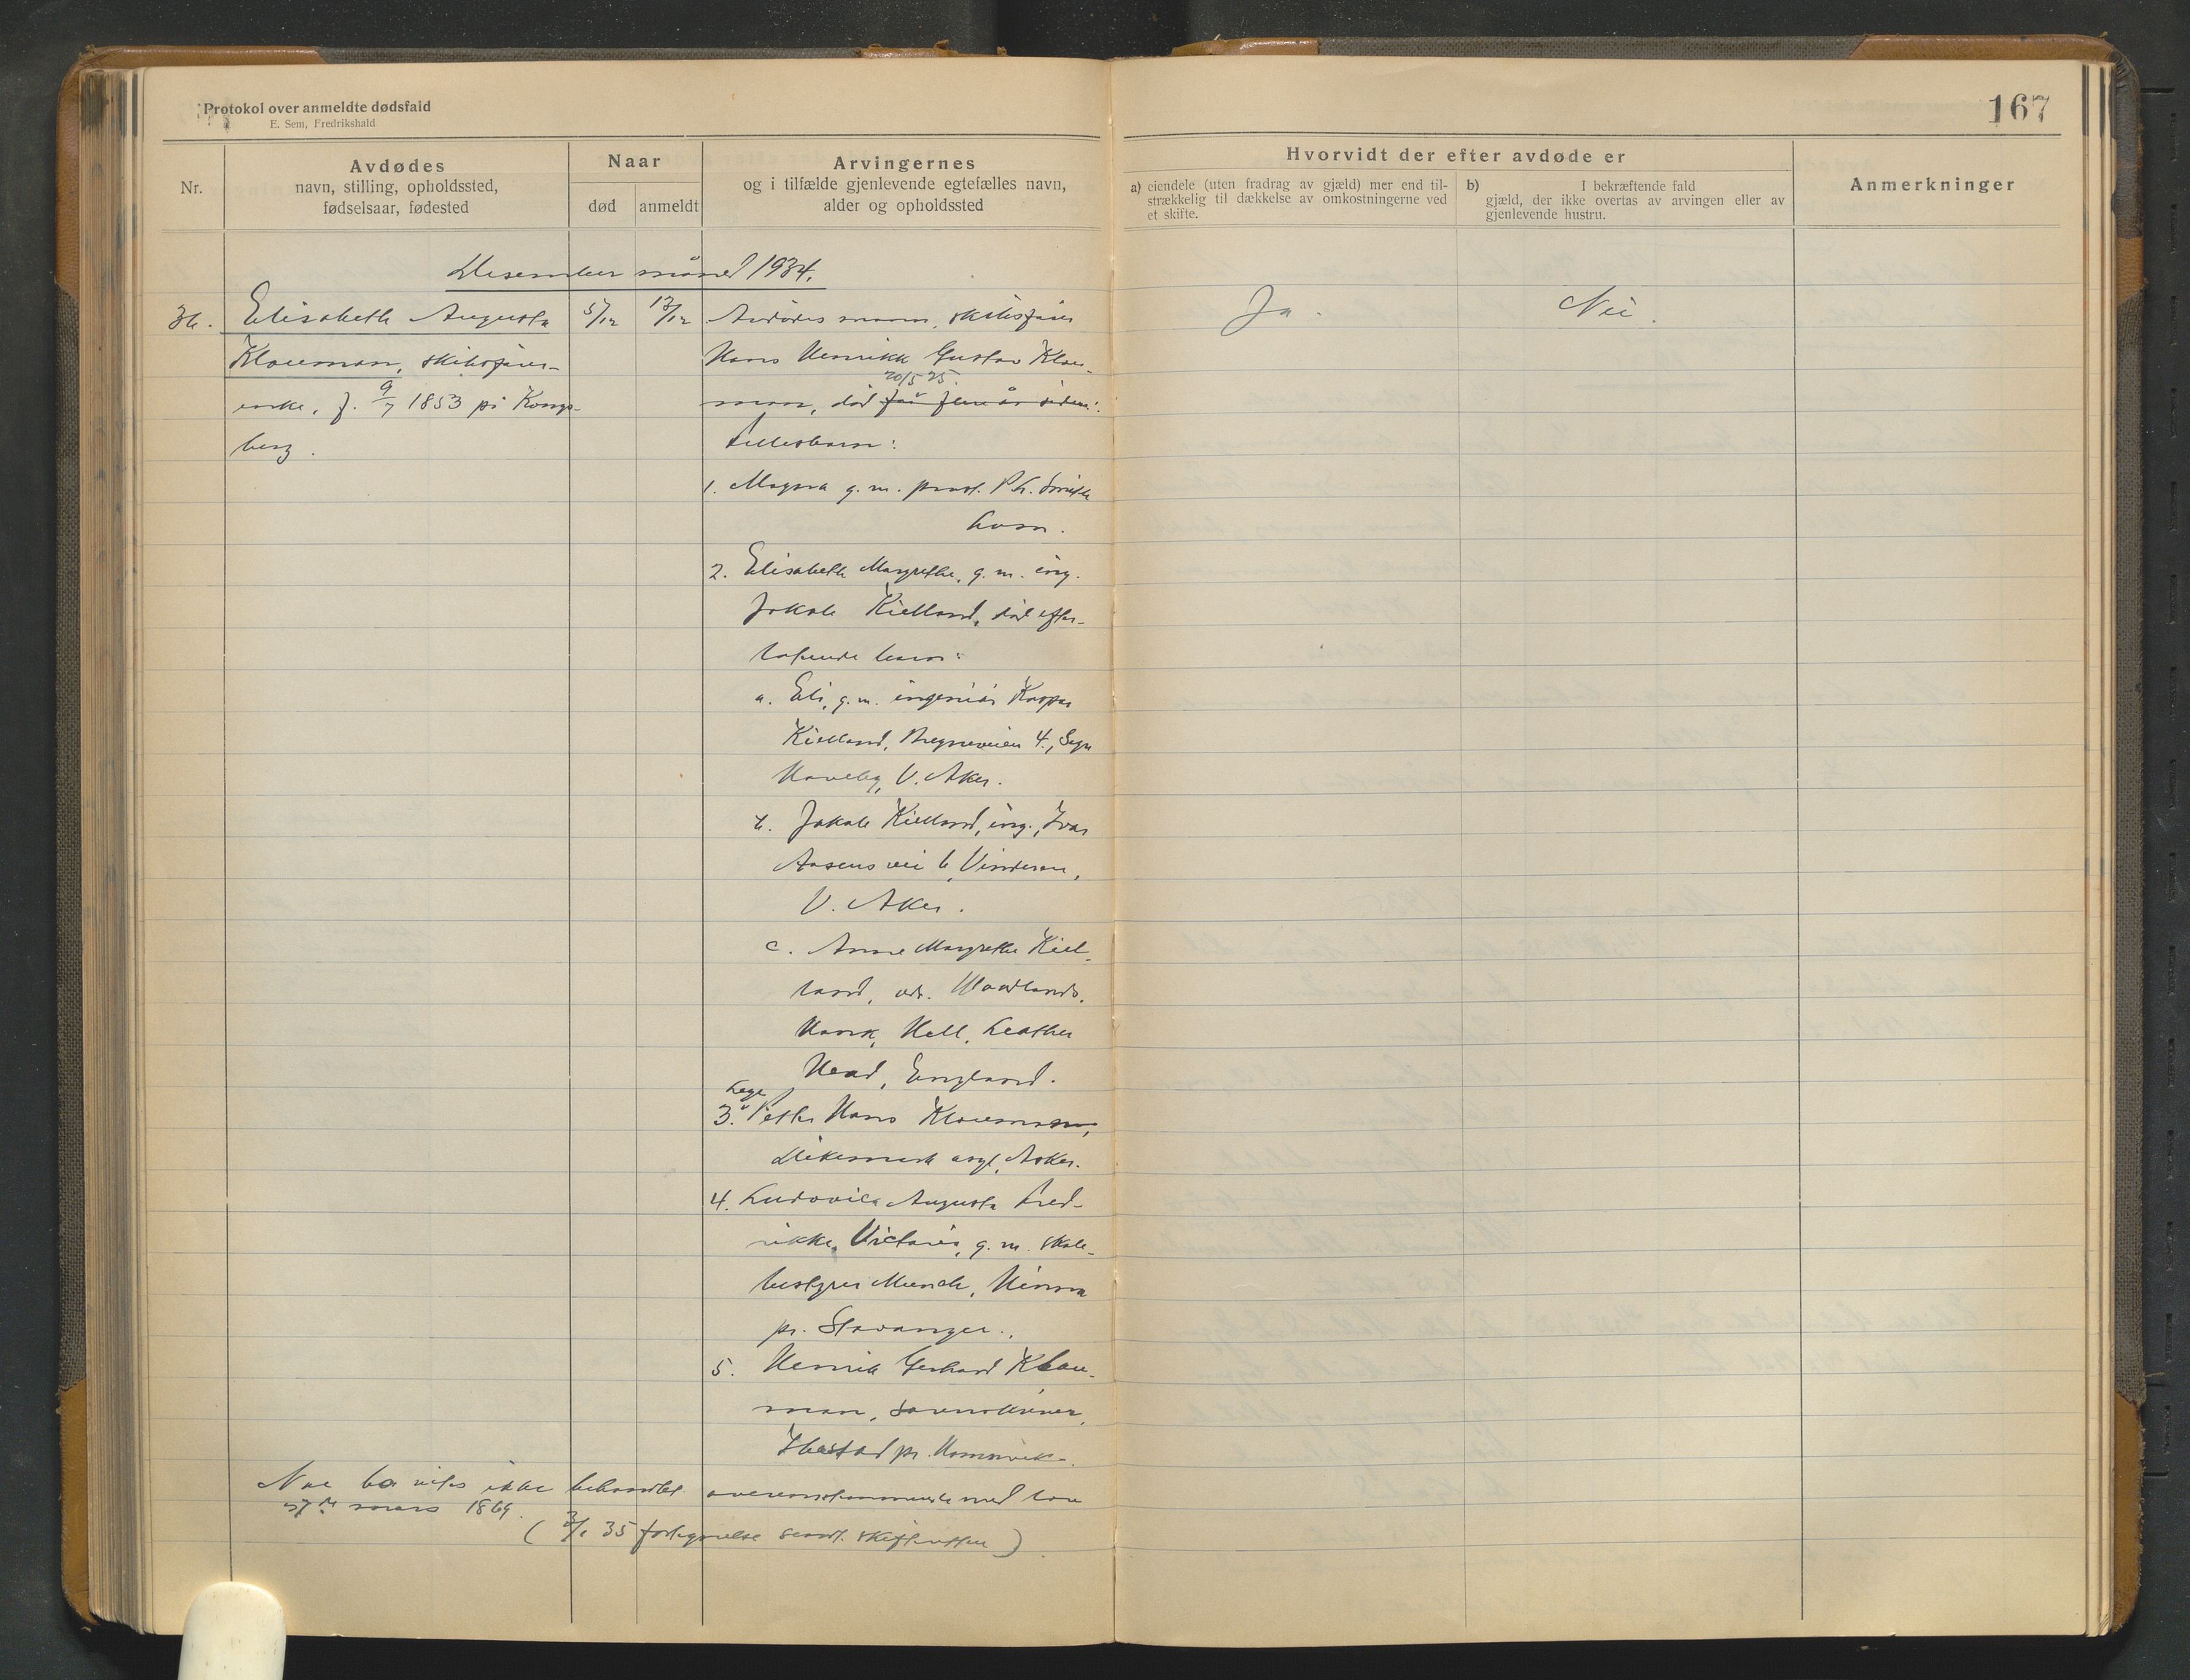 Protokol over anmeldte dødsfald
E. Sem, Fredrikshald
167
Nr.
Avdødes
navn, stilling, opholdssted,
fødselsaar, fødested
Naar
død
anmeldt
Arvingernes
og i tilfælde gjenlevende egtefælles navn,
alder og opholdssted
Hvorvidt der efter avdøde er
a) eiendele (uten fradrag av gjæld) mer end til-
strækkelig til dækkelse av omkostningerne ved
et skifte.
b) I bekræftende fald
gjæld, der ikke overtas av arvingen eller av
gjenlevende hustru.
Anmerkninger
Desember måned 1934.
36.
Elisabeth Augusta
Klouman, skibsfører-
enke, f. 9/7 1853 på Kongs-
berg.
5/12
13/12
Avdødes mann, skibsfører
Hans Henrikk Gustav Klou-
20/5 25.
man, død for flere år siden.
Fellesbarn:
1. Magna g.m. prost P. L. Smith
2. Elisabeth Margrethe, g.m. ing.
Jakob Kielland, død efter-
latende barn:
a. Eli, g.m. ingeniør Kaspar
Kielland, 4, Sogn
Haveby, V. Aker.
b. Jakob Kielland, ing., Ivar
Aasens vei 6, Vinderen,
V. Aker.
c. Anne Margrethe Kiel-
land, adr. Woodlands,
Hawk, Hill, Leather
Head, England.
Lege
3. Peter Hans Klouman,
Dikemark asyl, Asker.
4. Ludovica Augusta Fred-
rikke, Victoria, g.m. skole-
bestyrer Munch, Hinna
pr. Stavanger.
5. Henrik Gerhard Klou-
man,
Ibestad pr. Hamnvik.
Ja.
Nei.
Nae bo vites ikke behandlet overensstemmende med lov
27de mars 1869.
(3/1 35 fortegnelse sendt skifteretten)